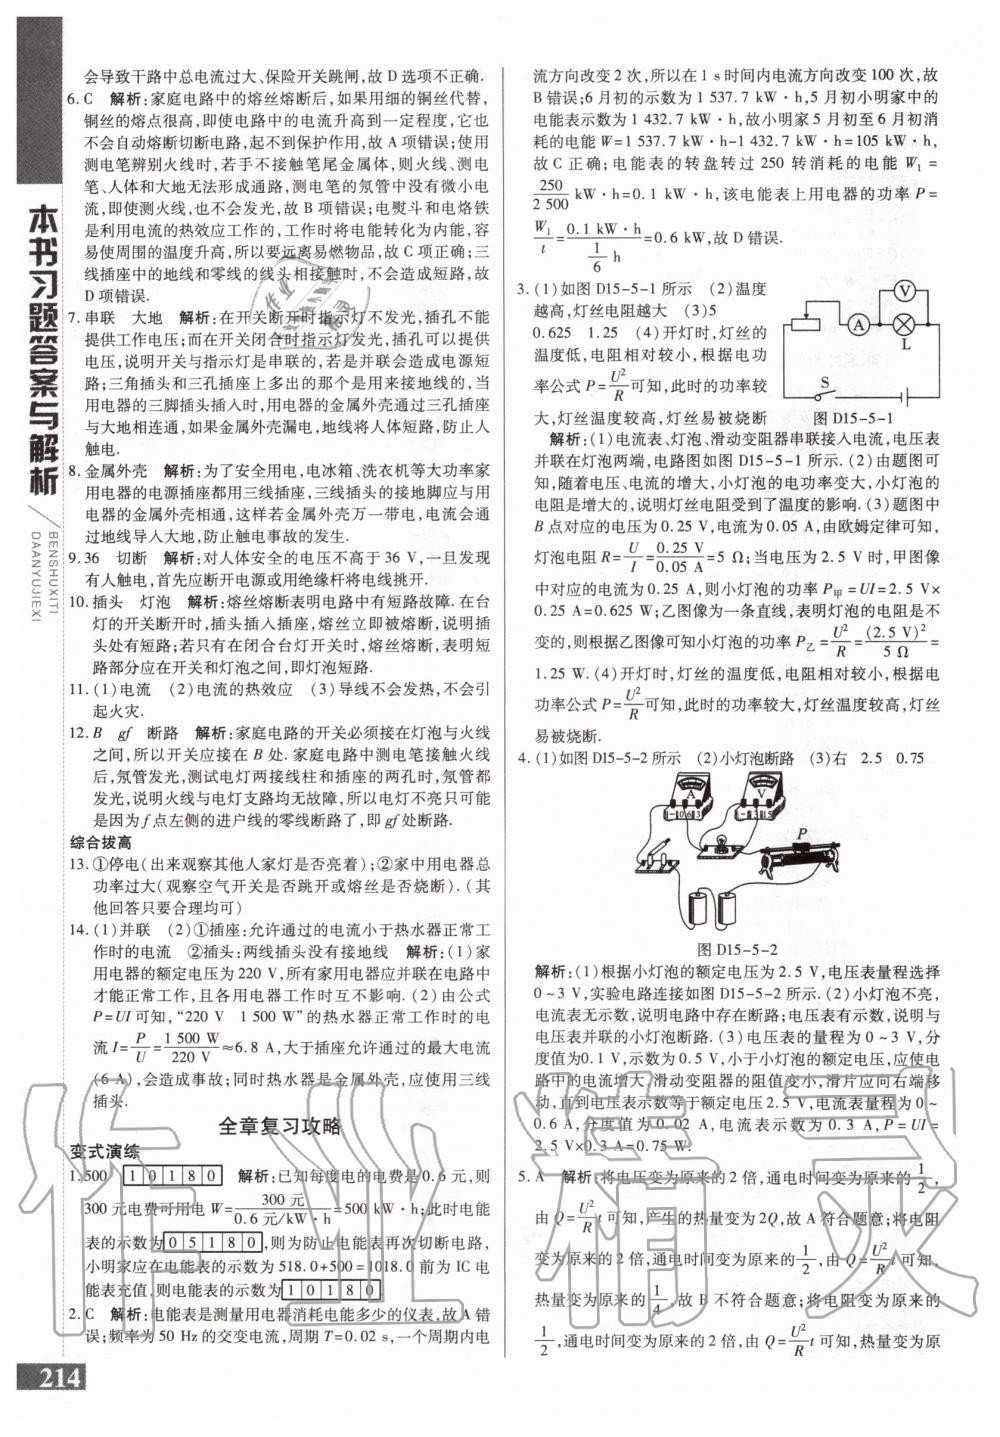 本书习题答案与解析
BENSHUXITI
DAANYUJIEXI
会导致干路中总电流过大、保险开关跳闸,故 D 选项不正确.
6. C 解析:家庭电路中的熔丝熔断后,如果用细的铜丝代替,
铜丝的熔点很高,即使电路中的电流升高到一定程度,它也
不会自动熔断切断电路,起不到保护作用,故 A 项错误;使用
测电笔辨别火线时,若手不接触笔尾金属体,则火线、测电
笔、人体和大地无法形成通路,测电笔的氖管中没有微小电
流,即使测火线,也不会发光,故 B 项错误;电熨斗和电烙铁
是利用电流的热效应工作的,工作时将电能转化为内能,容
易使周围的温度升高,所以要远离易燃物品,故 C 项正确;三
线插座中的地线和零线的线头相接触时,不会造成短路,故
D 项错误.
7. 串联 大地 解析:在开关断开时指示灯不发光,插孔不能
提供工作电压;而在开关闭合时指示灯发光,插孔可以提供
电压,说明开关与指示灯是串联的,若是并联会造成电源短
路;三角插头和三孔插座上多出的那个是用来接地线的,当
用电器的三脚插头插入时,用电器的金属外壳通过三孔插座
与大地相连通,如果金属外壳漏电,地线将人体短路,防止人
触电.
8. 金属外壳 解析:为了安全用电,电冰箱、洗衣机等大功率家
用电器的电源插座都用三线插座,三线插头的接地脚应与用
电器的金属外壳相通,这样若金属外壳万一带电,电流会通
过地线导入大地,防止触电事故的发生.
9. 36 切断 解析:对人体安全的电压不高于 36 V,一旦发现
有人触电,首先应断开电源或用绝缘杆将电线挑开.
10. 插头 灯泡 解析:熔丝熔断表明电路中有短路故障.在台
灯的开关断开时,插头插入插座,熔丝立即被熔断,说明插
头处有短路;若只有在闭合台灯开关时,熔丝熔断,表明短
路部分应在开关和灯泡之间,即灯泡短路.
11. (1)电流 (2)电流的热效应 (3)导线不会发热,不会引
起火灾.
12. B gf 断路 解析:家庭电路的开关必须接在灯泡与火线
之间,所以开关应接在 B 处.家庭电路中测电笔接触火线
后,氖管发光,测试电灯两接线柱和插座的两孔时,氖管都
发光,说明火线与电灯支路均无故障,所以电灯不亮只可能
是因为 f 点左侧的进户线的零线断路了,即 gf 处断路.
综合拔高
13. ①停电(出来观察其他人家灯是否亮着);②家中用电器总
功率过大(观察空气开关是否跳开或熔丝是否烧断).(其
他回答只要合理均可)
14. (1)并联 (2)①插座:允许通过的电流小于热水器正常工
作时的电流 ②插头:两线插头没有接地线 解析:(1)家
用电器的额定电压为 220 V,所有家用电器应并联在电路中
才能正常工作,且各用电器工作时互不影响.(2)由公式
P=UI 可知,“220 V 1 500 W”的热水器正常工作时的电
流 I=P/U=1 500 W/220 V≈6.8 A,大于插座允许通过的最大电流
(6 A),会造成事故;同时热水器是金属外壳,应使用三线
插头.
全章复习攻略
变式演练
1. 500 10180 解析:已知每度电的电费是 0.6 元,则
300 元电费可用电 W=300 元/0.6 元/kW·h=500 kW·h;此时电能
表的示数为05180,则为防止电能表再次切断电路,
小明家应在电能表的示数为 518.0+500=1018.0 前为 IC 电
能表充值,则电能表的示数为10180.
2. C 解析:电能表是测量用电器消耗电能多少的仪表,故 A 错
误;频率为 50 Hz 的交变电流,周期 T=0.02 s,一个周期内电
流方向改变 2 次,所以在 1 s 时间内电流方向改变 100 次,故
B 错误;6 月初的示数为 1 537.7 kW·h,5 月初小明家中的
电能表示数为 1 432.7 kW·h,故小明家 5 月初至 6 月初消
耗的电能 W=1 537.7 kW·h-1 432.7 kW·h=105 kW·h,
故 C 正确;电能表的转盘转过 250 转消耗的电能 W₁=
250/2 500 kW·h=0.1 kW·h,该电能表上用电器的功率 P=
W₁/t=0.1 kW·h/(1/6 h)=0.6 kW,故 D 错误.
3. (1)如图 D15-5-1 所示 (2)温度
越高,灯丝电阻越大 (3)5
0.625 1.25 (4)开灯时,灯丝的
温度低,电阻相对较小,根据电功
率公式 P=U²/R可知,此时的功率较
大,灯丝温度较高,灯丝易被烧断
V
A
L
S
图 D15-5-1
解析:(1)电流表、灯泡、滑动变阻器串联接入电流,电压表
并联在灯泡两端,电路图如图 D15-5-1 所示.(2)由题图可
知,随着电压、电流的增大,小灯泡的电功率变大,小灯泡的
电阻是增大的,说明灯丝电阻受到了温度的影响.(3)题图中
B 点对应的电压为 0.25 V,电流为 0.05 A,由欧姆定律可知,
灯泡电阻 R=U/I=0.25 V/0.05 A=5 Ω;当电压为 2.5 V 时,甲图像
中对应的电流为 0.25 A,则小灯泡的功率 P甲=UI=2.5 V×
0.25 A=0.625 W;乙图像为一条直线,表明灯泡的电阻是不
变的,则根据乙图像可知小灯泡的功率 P乙=U²/R=(2.5 V)²/5 Ω=
1.25 W.(4)开灯时,灯丝的温度低,电阻相对较小,根据电
功率公式 P=U²/R可知,此时的功率较大,灯丝温度较高,灯丝
易被烧断.
4. (1)如图 D15-5-2 所示 (2)小灯泡断路 (3)右 2.5 0.75
A
V
P
图 D15-5-2
解析:(1)根据小灯泡的额定电压为 2.5 V,电压表量程选择
0~3 V,实验电路连接如图 D15-5-2 所示.(2)小灯泡不亮,
电流表无示数,说明电路中存在断路;电压表有示数,说明与
电压表并联的小灯泡断路.(3)电压表的量程为 0~3 V,分
度值为0.1 V,示数为 0.5 V,小于小灯泡的额定电压,应使电
路中的电流增大,滑动变阻器的阻值变小,滑片应向右端移
动,直到电压表示数等于额定电压2.5 V,电流表量程为 0~
0.6 A,分度值为 0.02 A,电流表示数为 0.3 A,P=UI=
2.5 V×0.3 A=0.75 W.
5. A 解析:将电压变为原来的 2 倍,通电时间变为原来的1/2,
由 Q=U²/R t 可知,产生的热量变为2Q,故 A 符合题意;将电阻
变为原来的 2 倍,通电时间变为原来的1/2,由 Q=U²/R t 可知,
热量变为原来的1/4,故 B 不符合题意;将电阻变为原来的
1/2,通电时间变为原来的 2 倍,由 Q=U²/R t 可知,热量变为原
214
作业精灵